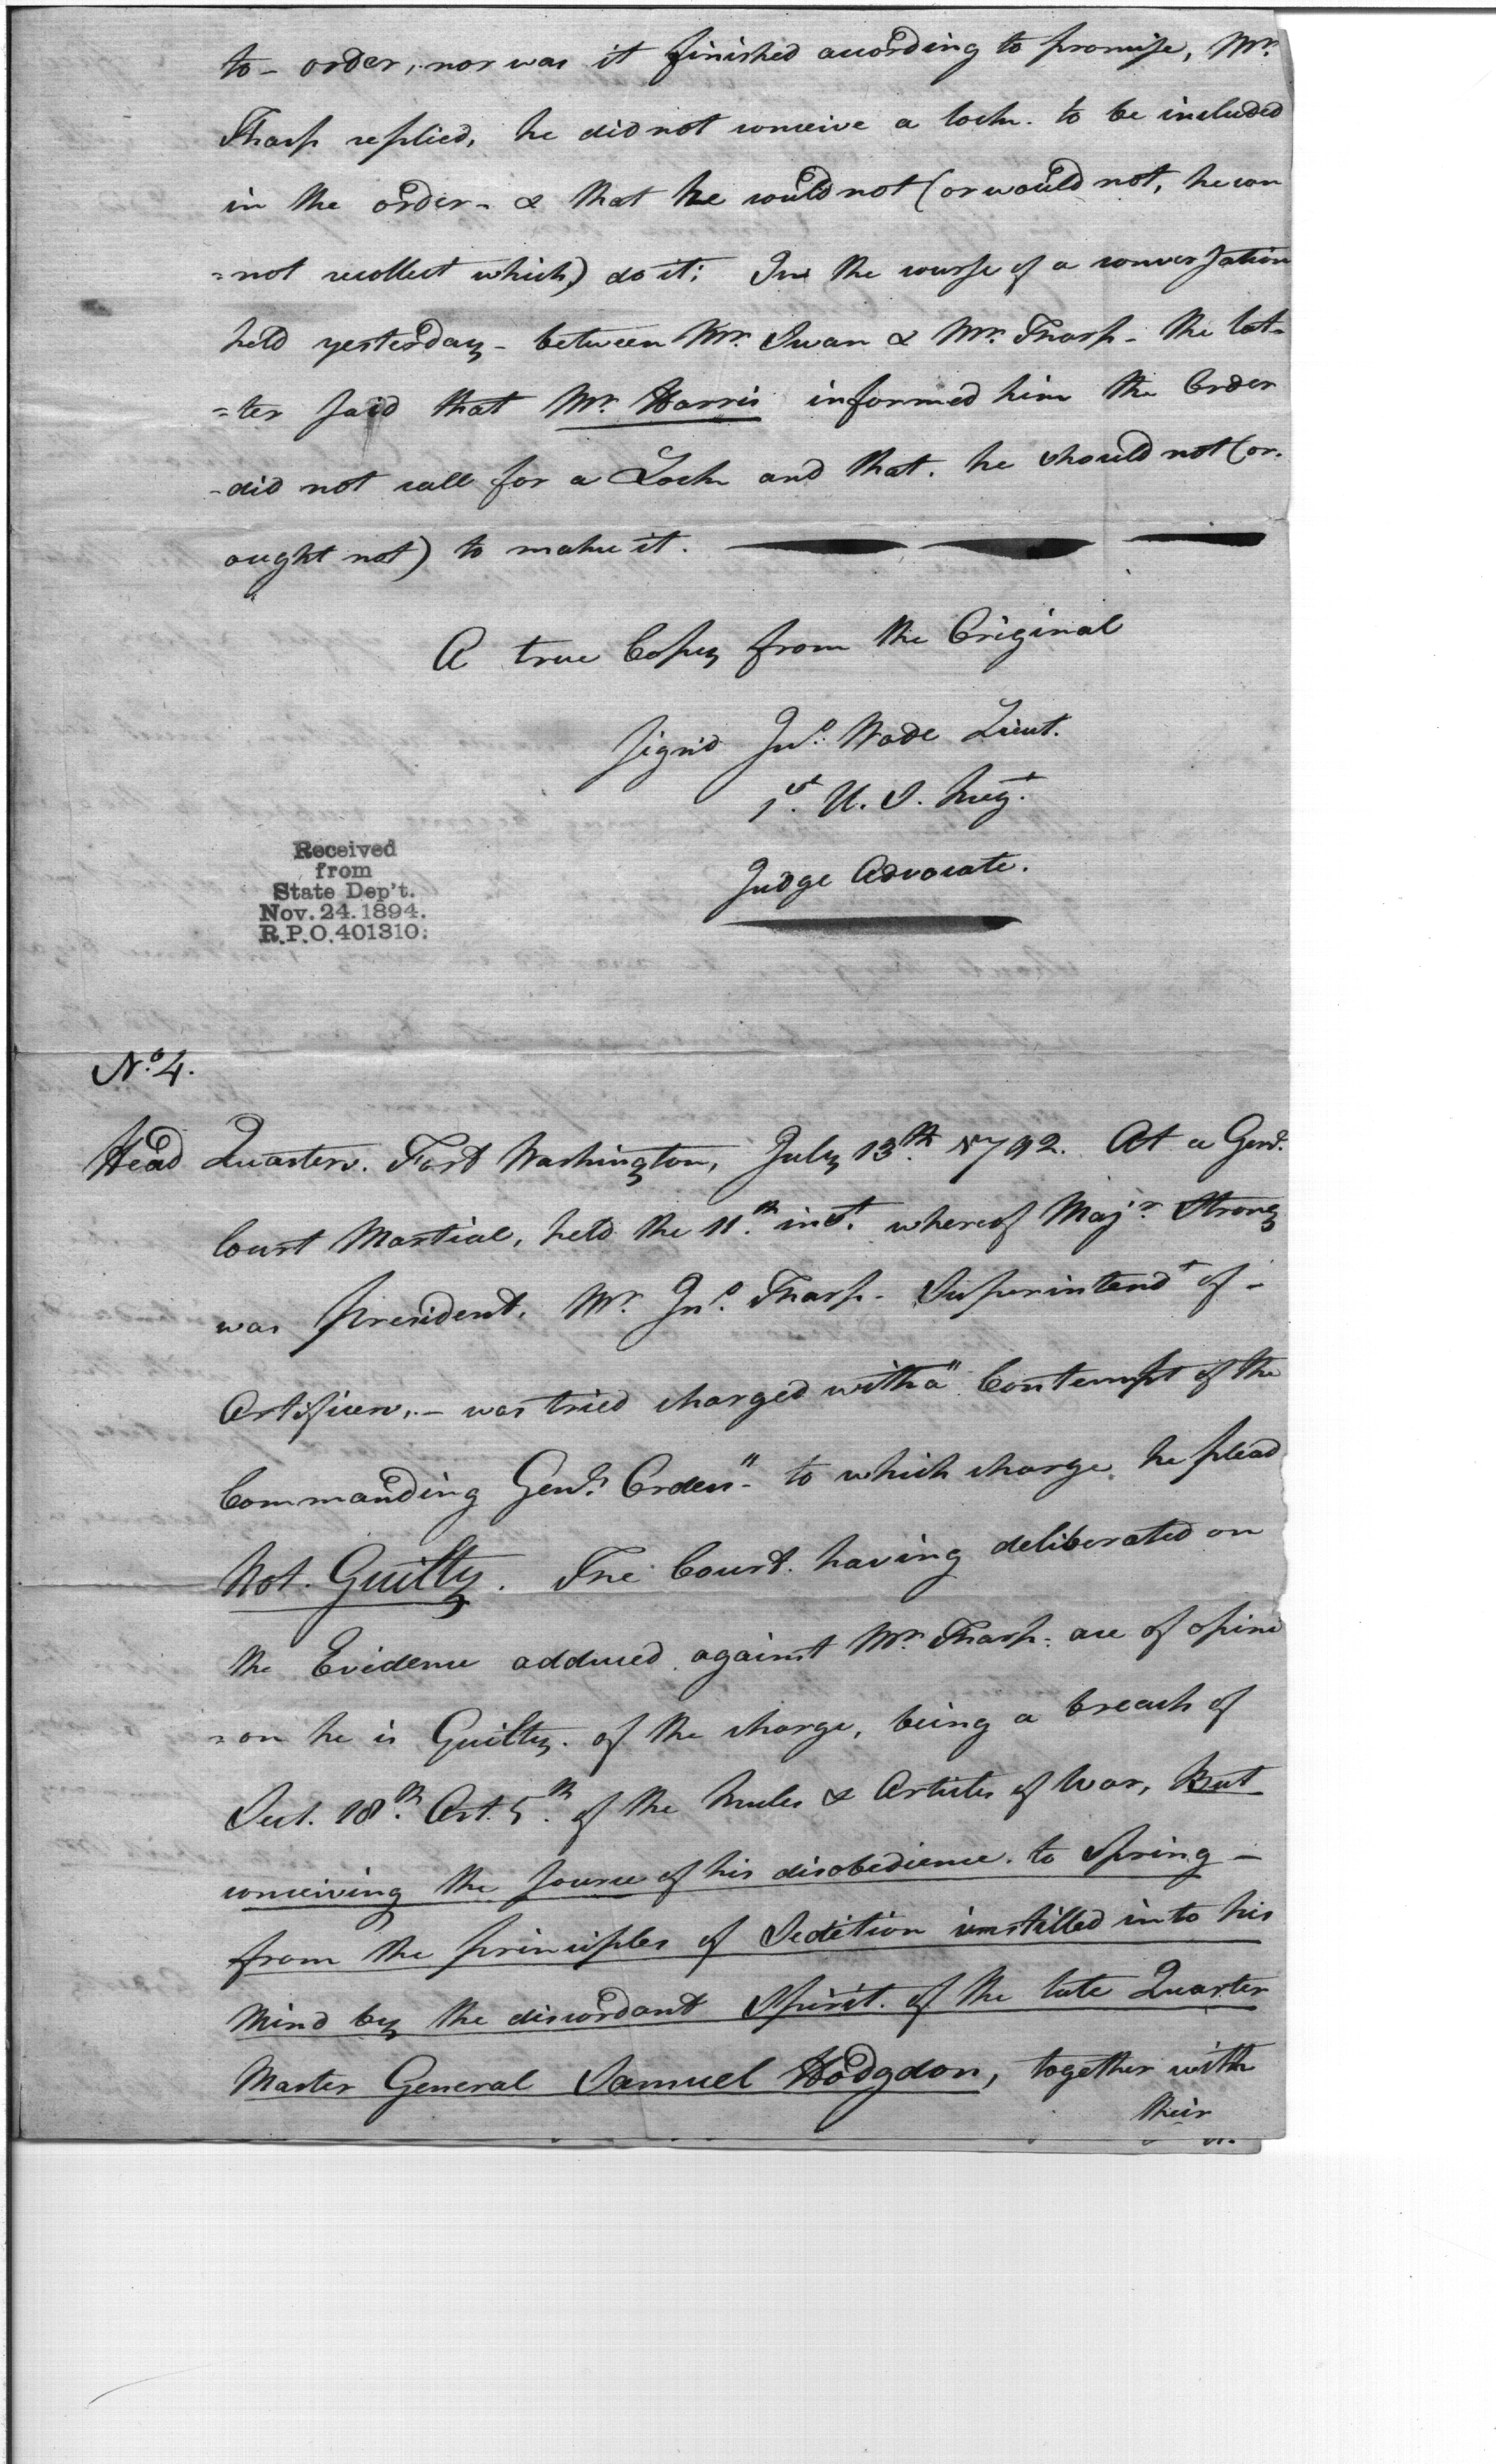 to - order, nor was it finished according to promise, Mr.
Tharp replied, he did not conceive a lock. to be included
in the order - & that he could not (or would not, he can
=not recollect which) do it; In the course of a conversation
held yesterday - between Mr. Swan & Mr. Tharp - the lat-
=ter said that Mr. Harris informed him the Order
-did not call for a Lock and that. he should not (or.
ought not) to make it.
A true Copy from the Original
Sign'd Jno. Wade Lieut.
1st. U. S. Regt.
Judge Advocate.
Received
from
State Dep't.
Nov. 24. 1894.
R.P.O. 401310.
No. 4.
Head Quarters. Fort Washington, July 13th. 1792. At a Genl.
Court Martial, held the 11th. inst. whereof Majr. Strong
was President, Mr. Jno. Tharp - Superintendt of -
Artificers, - was tried charged with a "Contempt of the
Commanding Genls. Orders" - to which charge he plead
Not. Guilty. The Court. having deliberated on
the Evidence adduced against Mr. Tharp - are of opini
=on he is Guilty. of the charge, being a breach of
Sect. 18th. Art. 5th. of the Rules & Articles of War, But
conceiving the source of his disobedience. to spring -
from the principles of Sedition instilled into his
Mind by the discordant Spirit. of the late Quarter
Master General Samuel Hodgdon, together with
their